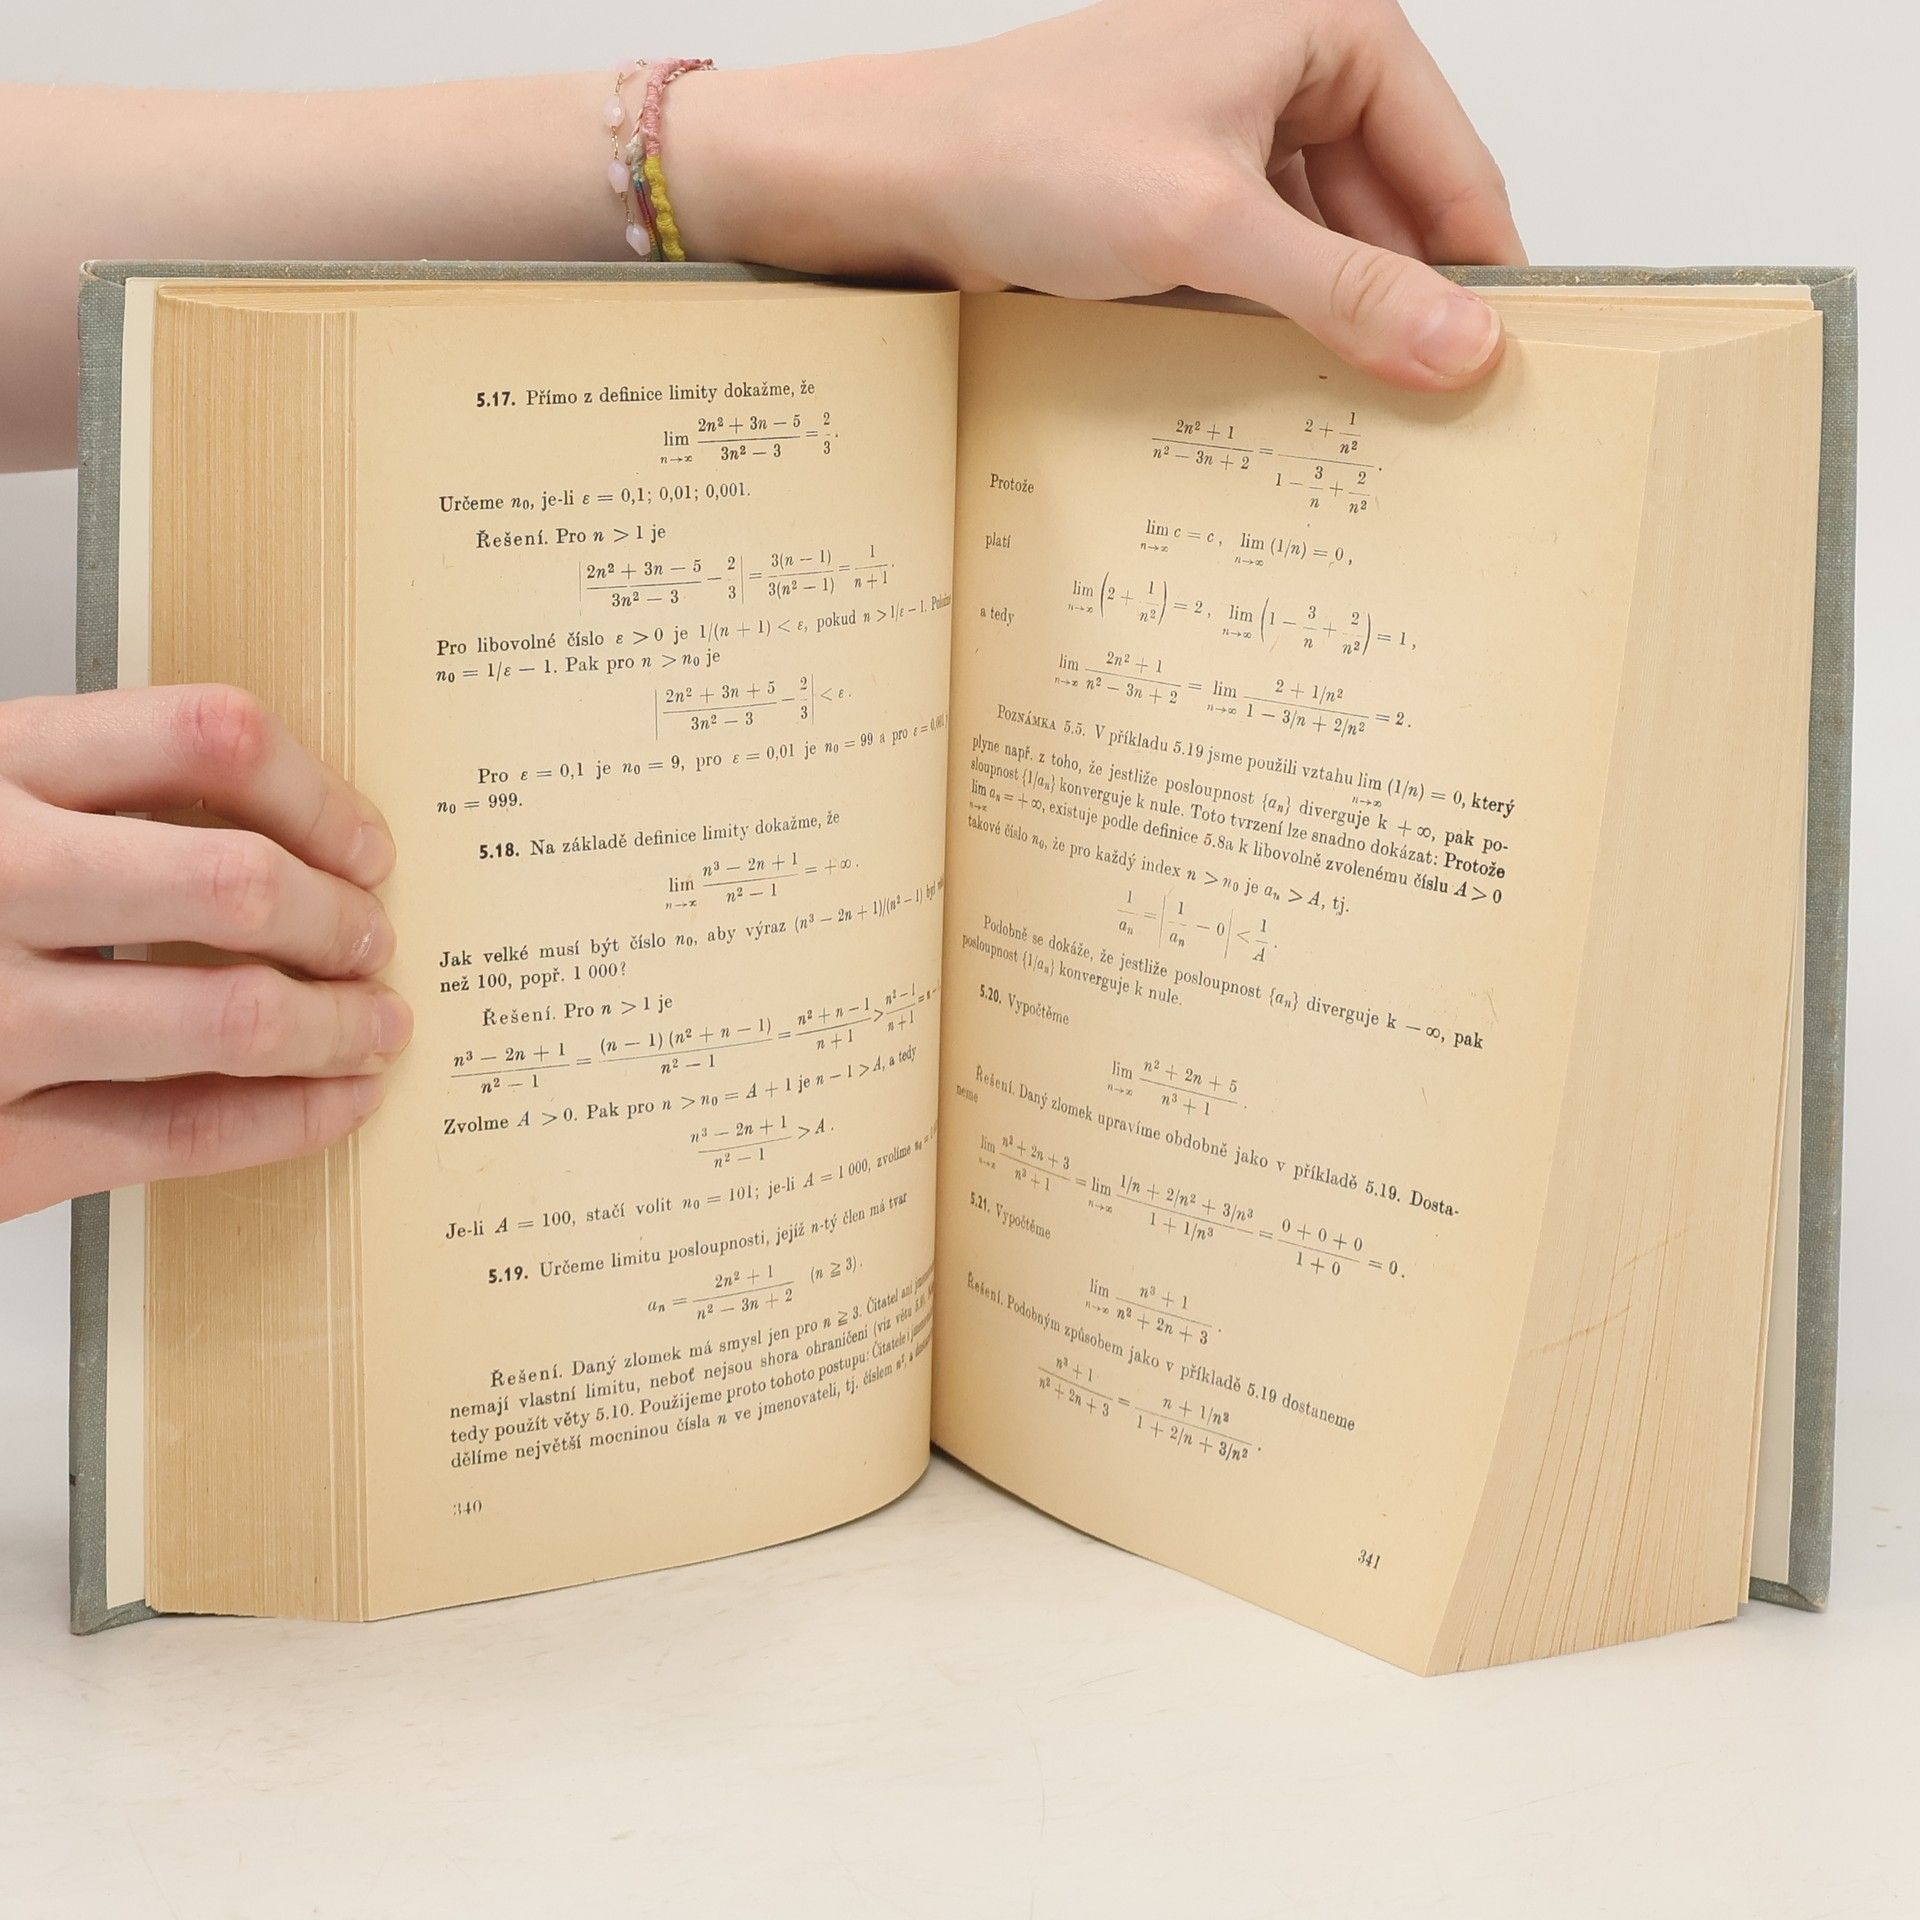 5.17. Přímo z definice limity dokažme, že
lim n→∞ (2n² + 3n − 5)/(3n² − 3) = 2/3.
Určeme n₀, je-li ε = 0,1; 0,01; 0,001.
Řešení. Pro n > 1 je
|(2n² + 3n − 5)/(3n² − 3) − 2/3| = 3(n − 1)/3(n² − 1) = 1/(n + 1).
Pro libovolné číslo ε > 0 je 1/(n + 1) < ε, pokud n > 1/ε − 1.
n₀ = 1/ε − 1. Pak pro n > n₀ je
|(2n² + 3n + 5)/(3n² − 3) − 2/3| < ε.
Pro ε = 0,1 je n₀ = 9, pro ε = 0,01 je n₀ = 99 a pro ε = 0,001
n₀ = 999.
5.18. Na základě definice limity dokažme, že
lim n→∞ (n³ − 2n + 1)/(n² − 1) = +∞.
Jak velké musí být číslo n₀, aby výraz (n³ − 2n + 1)/(n² − 1) byl
než 100, popř. 1 000?
Řešení. Pro n > 1 je
(n³ − 2n + 1)/(n² − 1) = (n − 1)(n² + n − 1)/(n² − 1) = (n² + n − 1)/(n + 1) > (n² − 1)/(n + 1) = n −
Zvolme A > 0. Pak pro n > n₀ = A + 1 je n − 1 > A, a tedy
(n³ − 2n + 1)/(n² − 1) > A.
Je-li A = 100, stačí volit n₀ = 101; je-li A = 1 000, zvolíme n₀ =
5.19. Určeme limitu posloupnosti, jejíž n-tý člen má tvar
aₙ = (2n² + 1)/(n² − 3n + 2) (n ≧ 3).
Řešení. Daný zlomek má smysl jen pro n ≧ 3. Čitatel ani
nemají vlastní limitu, neboť nejsou shora ohraničeni (viz větu
tedy použít věty 5.10. Použijeme proto tohoto postupu: Čitatele i
dělíme největší mocninou čísla n ve jmenovateli, tj. číslem n², a
340
(2n² + 1)/(n² − 3n + 2) = (2 + 1/n²)/(1 − 3/n + 2/n²).
Protože
lim n→∞ c = c, lim n→∞ (1/n) = 0,
platí
lim n→∞ (2 + 1/n²) = 2, lim n→∞ (1 − 3/n + 2/n²) = 1,
a tedy
lim n→∞ (2n² + 1)/(n² − 3n + 2) = lim n→∞ (2 + 1/n²)/(1 − 3/n + 2/n²) = 2.
POZNÁMKA 5.5. V příkladu 5.19 jsme použili vztahu lim n→∞ (1/n) = 0, který
plyne např. z toho, že jestliže posloupnost {aₙ} diverguje k +∞, pak po-
sloupnost {1/aₙ} konverguje k nule. Toto tvrzení lze snadno dokázat: Protože
lim n→∞ aₙ = +∞, existuje podle definice 5.8a k libovolně zvolenému číslu A > 0
takové číslo n₀, že pro každý index n > n₀ je aₙ > A, tj.
1/aₙ = |1/aₙ − 0| < 1/A.
Podobně se dokáže, že jestliže posloupnost {aₙ} diverguje k −∞, pak
posloupnost {1/aₙ} konverguje k nule.
5.20. Vypočtěme
lim n→∞ (n² + 2n + 5)/(n³ + 1).
Řešení. Daný zlomek upravíme obdobně jako v příkladě 5.19. Dosta-
neme
lim n→∞ (n² + 2n + 3)/(n³ + 1) = lim n→∞ (1/n + 2/n² + 3/n³)/(1 + 1/n³) = (0 + 0 + 0)/(1 + 0) = 0.
5.21. Vypočtěme
lim n→∞ (n³ + 1)/(n² + 2n + 3).
Řešení. Podobným způsobem jako v příkladě 5.19 dostaneme
(n³ + 1)/(n² + 2n + 3) = (n + 1/n²)/(1 + 2/n + 3/n²).
341